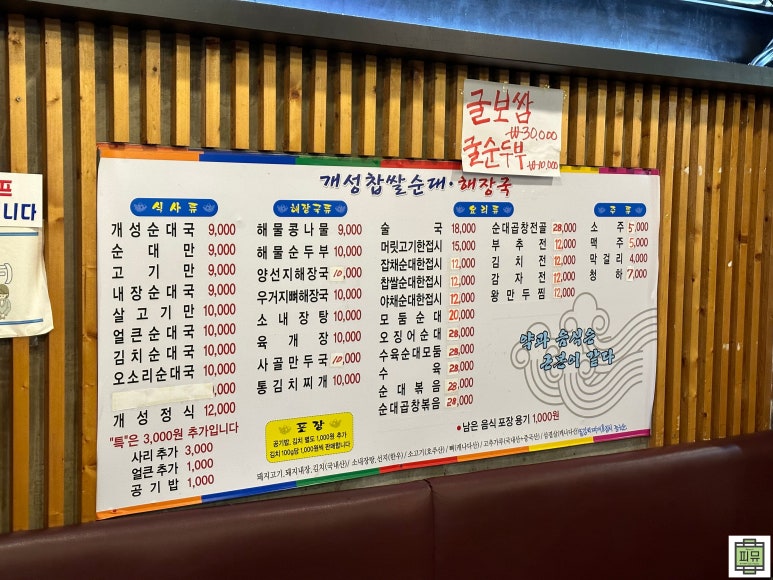 굴보쌈
₩30,000
굴순두부
₩10,000
개성찹쌀순대·해장국
식사류
개성순대국 9,000
순대만 9,000
고기만 9,000
내장순대국 9,000
살고기만 10,000
얼큰순대국 10,000
김치순대국 10,000
오소리순대국 10,000
,000
개성정식 12,000
"특"은 3,000원 추가입니다
사리추가 3,000
얼큰추가 1,000
공기밥 1,000
해장국류
해물콩나물 9,000
해물순두부 10,000
양선지해장국 10,000
우거지뼈해장국 10,000
소내장탕 10,000
육개장 10,000
사골만두국 10,000
통김치찌개 10,000
포장
공기밥, 김치 별도 1,000원 추가
김치 100g당 1,000원씩 판매합니다
요리류
술국 18,000
머릿고기한접시 15,000
잡채순대한접시 12,000
찹쌀순대한접시 12,000
야채순대한접시 12,000
모둠순대 20,000
오징어순대 28,000
수육순대모둠 28,000
수육 28,000
순대볶음 28,000
순대곱창볶음 28,000
순대곱창전골 28,000
부추전 12,000
김치전 12,000
감자전 12,000
왕만두찜 12,000
주류
소주 5,000
맥주 5,000
막걸리 4,000
청하 7,000
약과 음식은
근본이 같다
•남은 음식 포장 용기 1,000원
돼지고기, 돼지내장, 김치(국내산) / 소내장탕, 선지(한우) / 소고기(호주산) / 뼈(캐나다산) / 고추가루(국내산+중국산) / 삼겹살(캐나다산)
프
니다
피뮤